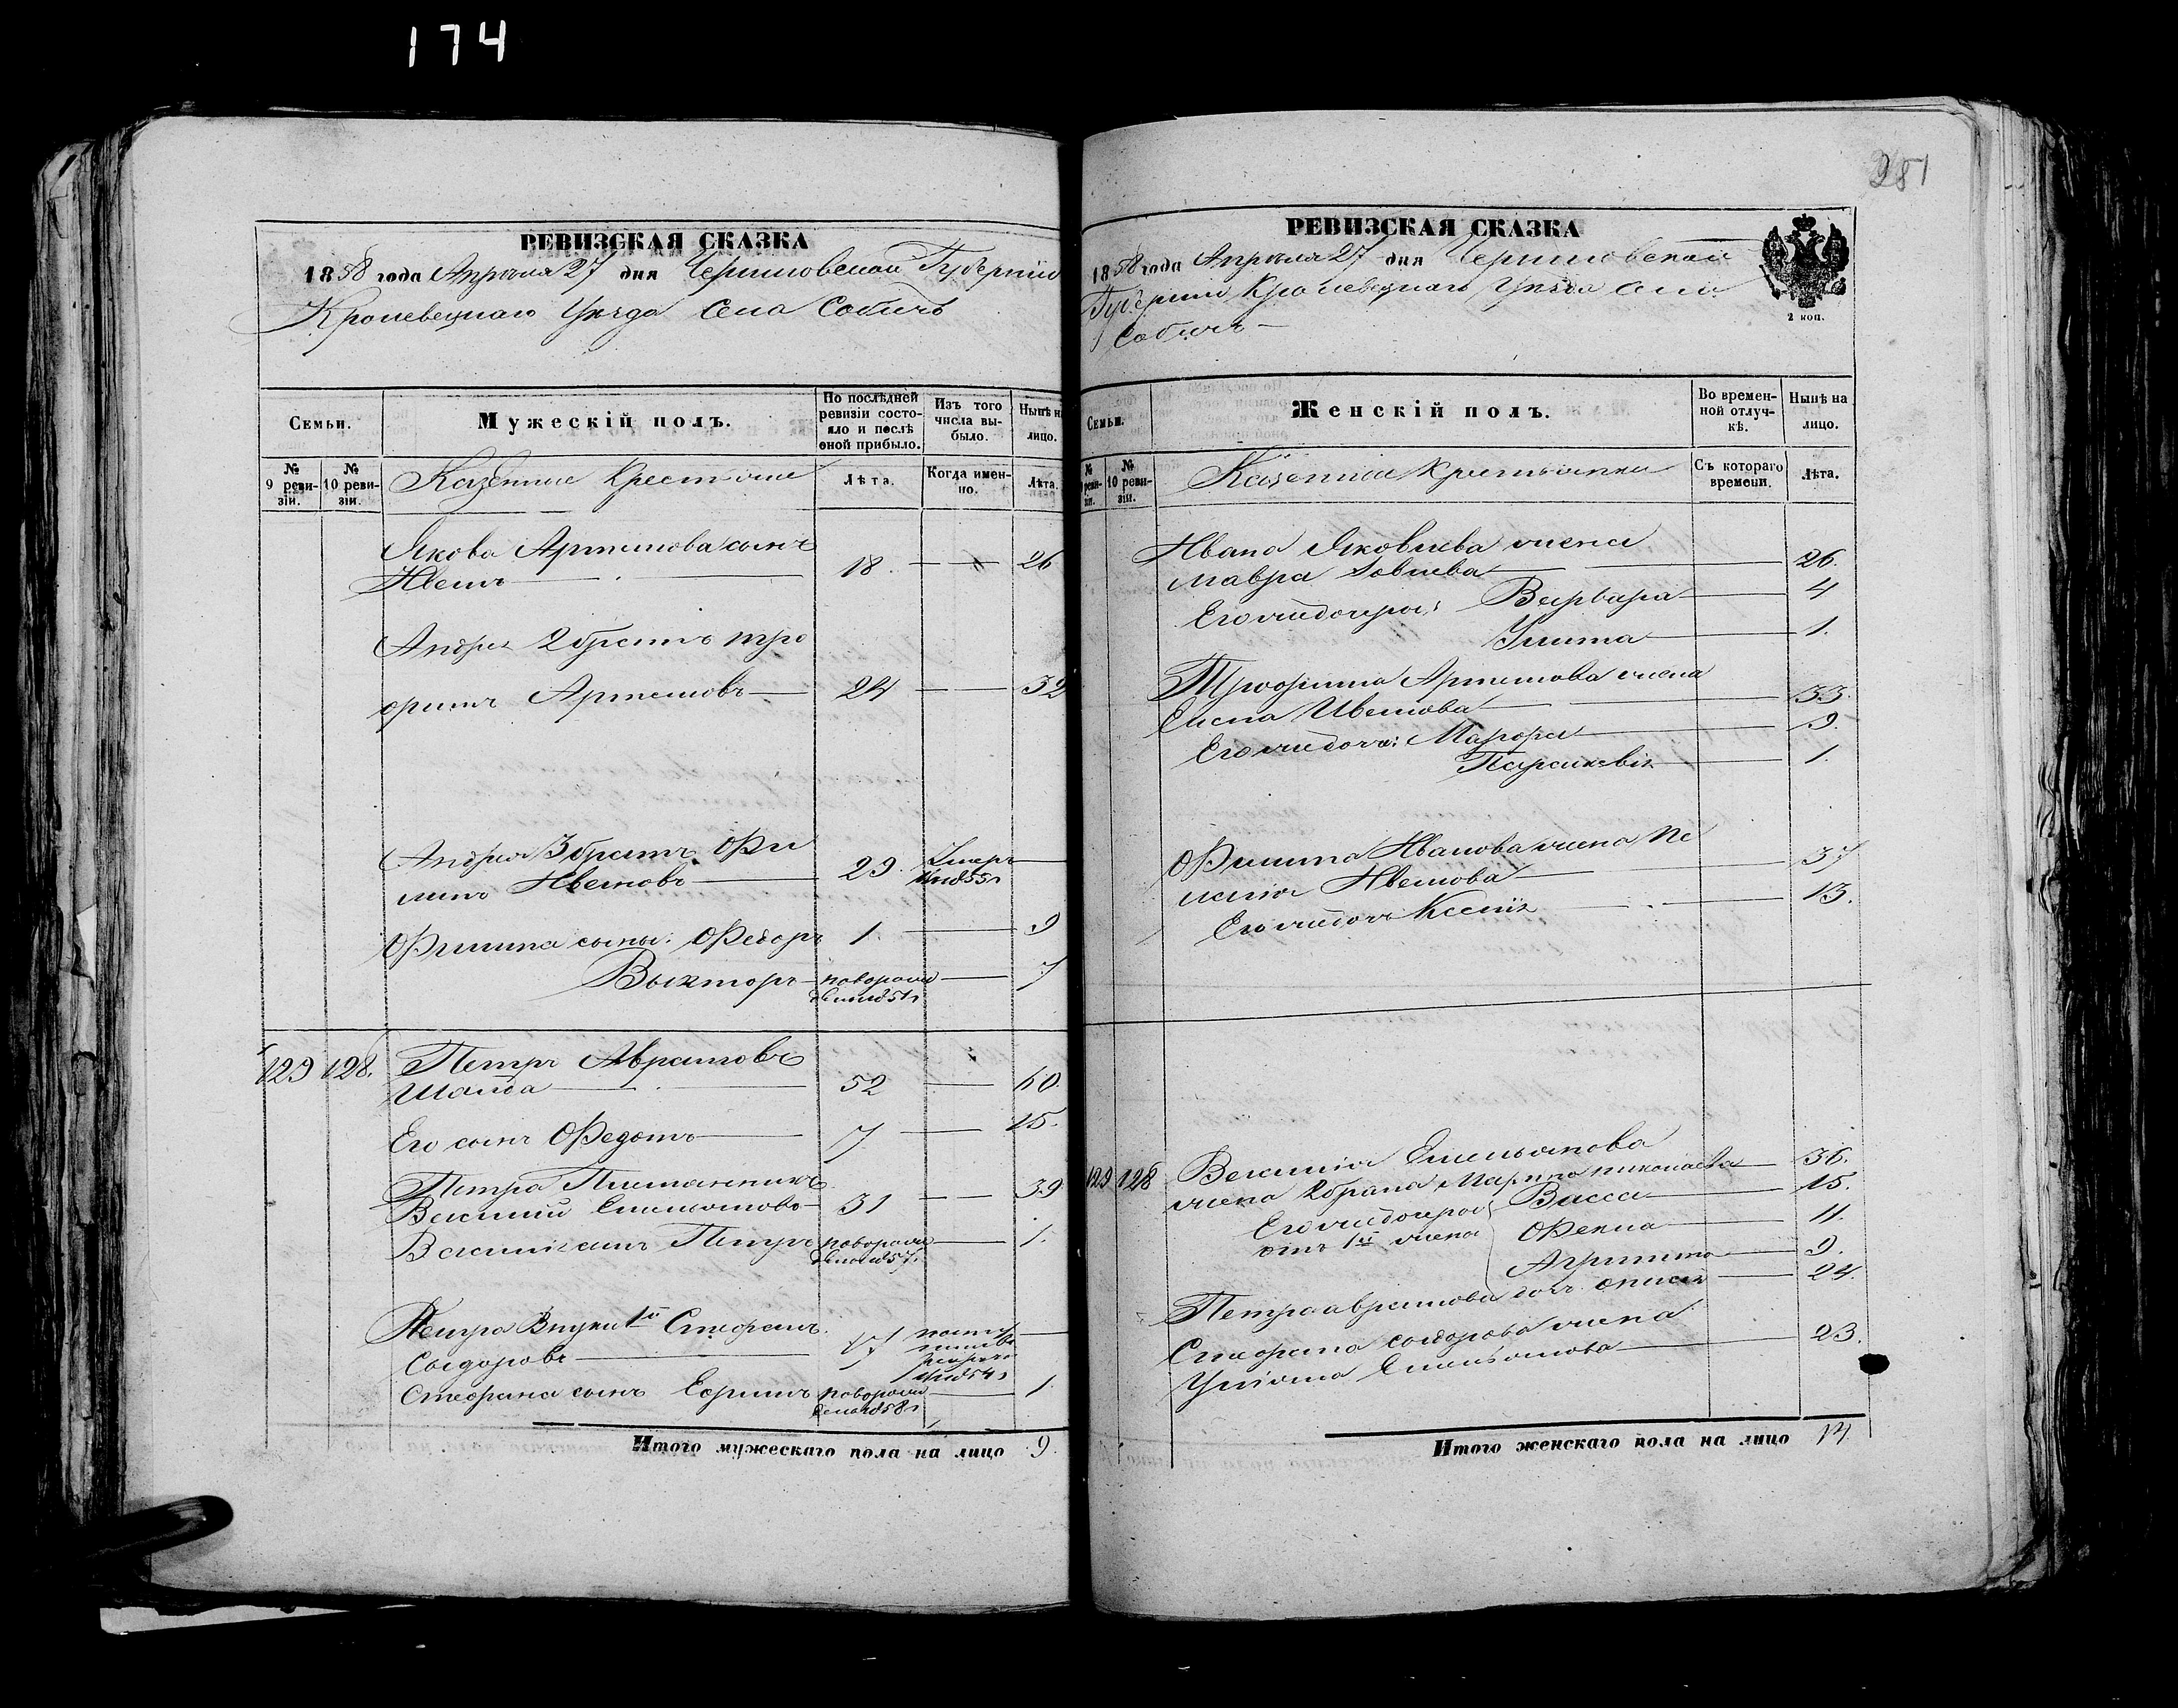 174
281
РЕВИЗСКАЯ СКАЗКА
1858 года Апреля 27 дня Черниговской Губернии
Кролевецкаго Уезда Села Собичъ
Семьи.
Мужескій полъ.
По послѣдней ревизіи состояло и послѣ оной прибыло.
Изъ того числа выбыло.
Нынѣ на лицо.
№ 9 ревизіи.
№ 10 ревизіи.
Казенные Крестьяне
Лѣта.
Когда именно.
Лѣта.
Якова Артемова сынъ
Иванъ 18 26
Андрея 2 братъ Тро
фимъ Артемовъ 24 32
Андрея 3 братъ Фи
липъ Ивановъ 29 Умеръ 55г
Филипа сыны: Федоръ 1 9
Викторъ новорожд 51г 7
129 128. Петръ Абрамовъ
Шайда 52 60.
Его сынъ Федотъ 7 15.
Петра Племянникъ
Василий Емельяновъ 31 39
Василія сынъ Петръ новорожд 57г 1.
Петра Внуки 1й Стефанъ
Сидоровъ 17 54г
Стефана сынъ Ефимъ новорожд 58г 1.
Итого мужескаго пола на лицо 9.
РЕВИЗСКАЯ СКАЗКА
1858 года Апреля 27 дня Черниговской
Губернии Кролевецкаго Уезда Села
Собичъ
2 коп.
Семьи.
Женскій полъ.
Во временной отлучкѣ.
Нынѣ на лицо.
№ ревизіи.
№ 10 ревизіи.
Казенныя Крестьянки
Съ котораго времени.
Лѣта.
Ивана Яковлева жена
Мавра 26.
Его дочери: Варвара 4
Улита 1.
Трофима Артемова жена
Елена Иванова 33.
Его дочи: Марфа 9.
Параскевія 1.
Филипа Иванова жена Пе
лагія Иванова 37
Его дочь Ксенія 13.
129 128 Василия Емельянова
жена 2 брака Марина Николаева 36.
Его дочери Васса 15.
отъ 1й жены Фекла 11.
Агрипина 9.
Петра Абрамова доч Анисья 24.
Стефана Сидорова жена
Улияна Емельянова 23.
Итого женскаго пола на лицо 14